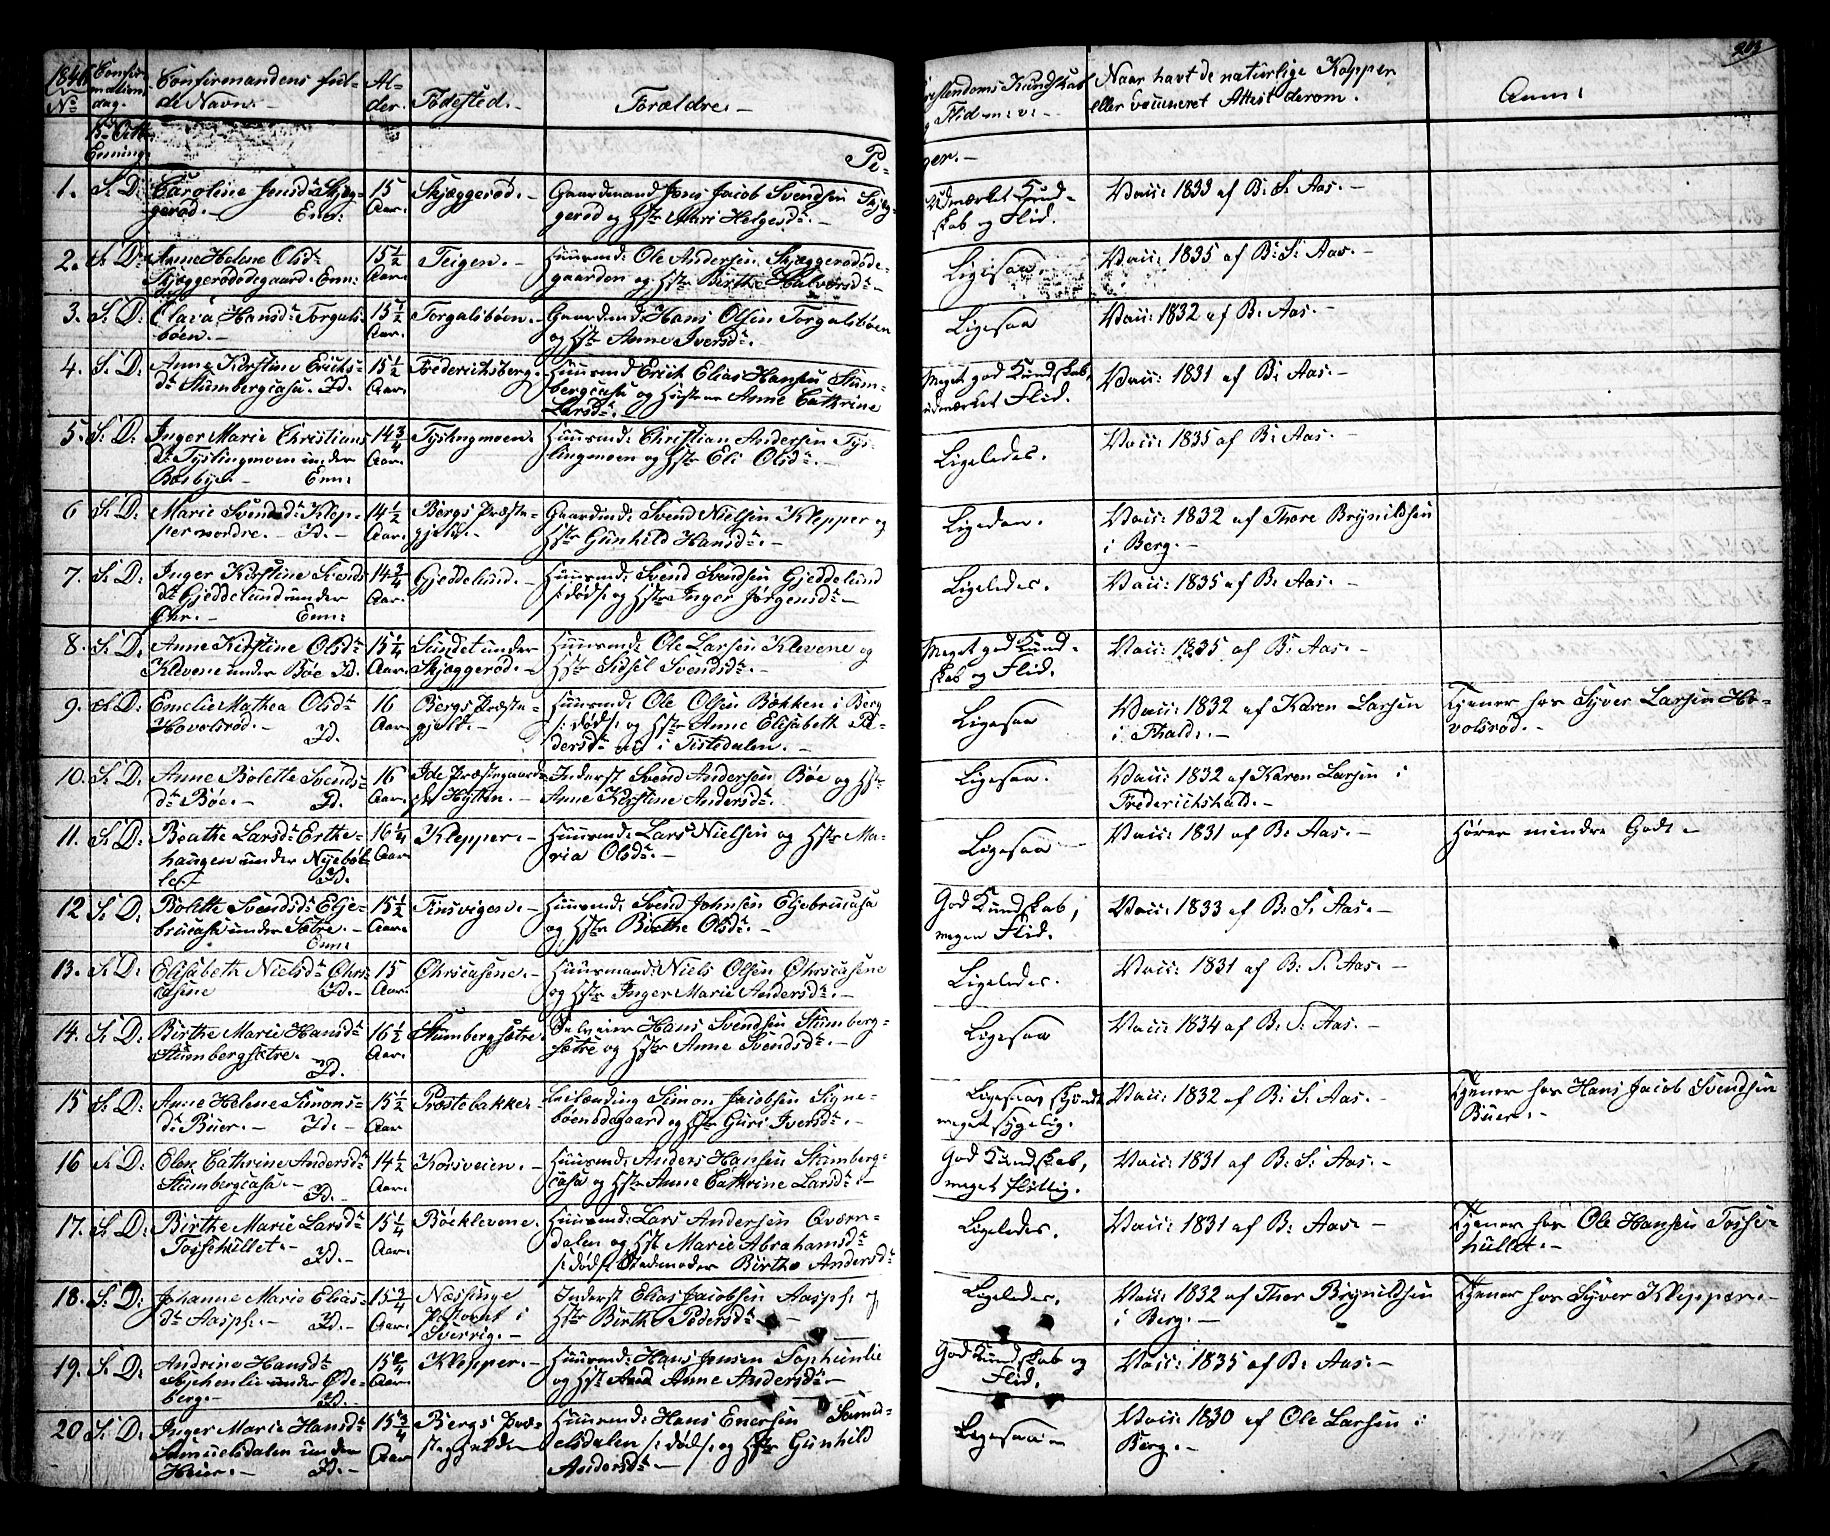 1846
No
Confir-
mations
dag.
Confirmandens ful-
de Navn.-
Al-
der.
Fødested.-
Forældre.-
Christendoms Kundskab
og Flid m: v:-
Naar havt de naturlige Kopper
eller vaccineret Attest derom.-
Anm:
203
Enning
Pi-
ger.-
1. S. D: Caroline Jensdtr Skjæg-
gerød.- Enn:
15
Aar.
Skjæggerød.-
Gaardmand Jens Jacob Svendsen Skjæg-
gerød og Hstr Mari Helgesdtr.-
Udmærket Kund-
skab og Flid.
Vacc: 1833 af B: S: Aas.-
2. S. D: Anne Helene Olsdtr
Skjæggerødødegaard. Enn:
15 1/2
Aar.
Teigen.-
Huusmd: Ole Andersen Skjæggerødøde-
gaarden og Hstr Birthe Halvorsdtr-
Ligesaa.
Vacc: 1835 af B: S: Aas.-
3. S. D: Olava Hansdtr Torgals-
bøen.-
15 1/2
Aar.
Torgalsbøen.-
Gaardmd: Hans Olsen Torgalsbøen
og Hstr Anne Iversdtr.-
Ligesaa
Vacc: 1832 af B: Aas.-
4. S. D: Anne Kirstine Erichs-
dtr Stumbergcasa. Id.
15 1/2
Aar.
Frederichsberg.
Huusmd Erich Elias Hansen Stum-
bergcasa og Hustrue Anne Cathrine
Larsdtr.-
Meget god Kundskab,
udmærket Flid.
Vacc: 1831 af B: Aas.-
5. S. D: Inger Marie Christians
dtr Tyslingmoen under
Bøsbye.- Enn:
14 3/4
Aar.
Tyslingmoen.
Huusmd: Christian Andersen Tys-
lingmoen og Hstr Eli Olsdtr.-
Ligeledes.
Vacc: 1835 af B: Aas.-
6 S. D: Marie Svendsdtr Klep-
per nordre.- Id.-
14 1/2
Aar.
Bergs Præste-
gjeld.-
Gaardmd: Svend Nielsen Klepper og
Hstr Gunhild Hansdtr.-
Ligedan.
Vacc: 1832 af Thore Brynildsen
i Berg.-
7. S. D: Inger Kirstine Svends
dtr Gjeddelund under
Ohr.- Enn:
14 3/4
Aar.
Gjeddelund.-
Huusmd: Svend Svendsen Gjeddelund
/: død :/ og Hstr Inger Jørgensdtr-
Ligeledes.
Vacc: 1835 af B: Aas.-
8. S. D: Anne Kirstine Olsdtr
Klevene under Bøe Id.
15 1/4
Aar.
Sundet under
Skjæggerød.-
Huusmd: Ole Larsen Klevene og
Hstr Sidsel Svendsdtr.-
Meget god Kund-
skab og Flid.
Vacc: 1835 af B: Aas.-
9. S. D: Emelie Mathea Olsdtr
Hovolsrød.- Id.
16
Aar.
Bergs Præste-
gjeld.-
Huusmd: Ole Olsen Bækken i Berg
/: død :/ og Hstr Anne Elisabeth Pe-
dersdtr nu i Tistedalen.-
Ligesaa
Vacc: 1832 af Karen Larsen
i Fhald:-
Tjener hos Syver Larsen Ho-
volsrød.-
10. S. D: Anne Bolette Svends-
dtr Bøe.- Id.
16
Aar.
Ide Præstegaards
pl: Hytten.-
Inderst Svend Andersen Bøe og Hstr
Anne Kirstine Andersdtr.
Ligesaa.
Vacc: 1832 af Karen Larsen i
Frederichshald.-
11. S. D: Beathe Larsdtr Erthe-
haugen under Nyebøl
le.- Id.
16 1/4
Aar.
Klepper.-
Huusmd: Lars Nielsen og Hstr Ma-
ria Olsdtr.-
Ligesaa
Vacc: 1831 af B: Aas.-
Hører mindre Godt-
12 S. D: Bolette Svendsdtr Elje-
brucasa under Sætre.-
Enn:
15 1/2
Aar.
Tinsvigen.-
Huusmd: Svend Johnsen Eljebrucasa
og Hstr Birthe Olsdtr.-
God Kundskab,
megen Flid.
Vacc: 1833 af B: S: Aas.-
13. S. D: Elisabeth Nielsdtr Ohrs
casene Id.-
15
Aar.
Ohrscasene.-
Huusmand: Niels Olsen Ohrscasene
og Hstr Inger Marie Andersdtr.-
Ligeledes.
Vacc: 1831 af B: S: Aas.-
14. S. D: Birthe Marie Hansdtr
Stumbergsætre. Id.
16 1/2
Aar.
Stumbergsætre.
Selveier Hans Svendsen Stumberg-
sætre og Hstr Anne Svendsdtr.-
Ligesaa
Vacc: 1834 af B: S: Aas.-
15 S. D: Anne Helene Simons-
dtr Buer.- Id.-
15 1/2
Aar.
Prestebakke.
Leilending Simon Jacobsen Signe-
bøenødegaard og Hstr Guri Iversdtr.-
Ligesaa, skjøndt
meget sygelig.
Vacc: 1832 af B: S: Aas.-
Tjener hos Hans Jacob Svendsen
Buer.-
16 S. D: Olea Cathrine Andersdtr
Stumbergcasa.- Id.-
14 1/2
Aar.
Korsveien.-
Huusmd: Anders Hansen Stumberg-
casa og Hstr Anne Cathrine Larsdtr.-
God Kundskab,
meget flittig.
Vacc: 1831 af B: S: Aas.-
17. S. D: Birthe Marie Larsdtr
Tossehullet.- Id.-
15 1/4
Aar.
Bøeklevene.
Huusmd: Lars Andersen Qværn-
dalen og Hst Marie Abrahamsdtr
/: død :/ Stedmoder Birthe Andersdtr
Ligeledes.
Vacc: 1831 af B: Aas-
Tjener hos Ole Hansen Tosse-
hullet.-
18. S. D: Johanne Marie Elias-
dtr Aasph:- Id.-
15 3/4
Aar.
Næssinge
Pastorat i
Sverrig.-
Inderst Elias Jacobsen Aasph: og
Hstr Birthe Pedersdtr-
Ligeledes.
Vacc: 1832 af Thor Brynildsen
i Berg.-
Tjener hos Syver Klepper.-
19. S. D: Andrine Hansdtr
under Øde-
berg.- Id.
15
Aar.
Klepper.-
Huusmd: Hans Jensen
og Hstr Anne Andersdtr-
God Kundskab og
Flid.
Vacc: 1835 af B: Aas.-
20 S. D: Inger Marie Hansdtr
Samuelsdalen under
Heier.- Id.-
15 3/4
Aar
Bergs Præ-
stegjeld-
Huusmd: Hans Enersen Samu-
elsdalen /: død :/ og Hstr Gunhild
Andersdtr-
Ligesaa-
Vacc: 1830 af Ole Larsen i
Berg.-